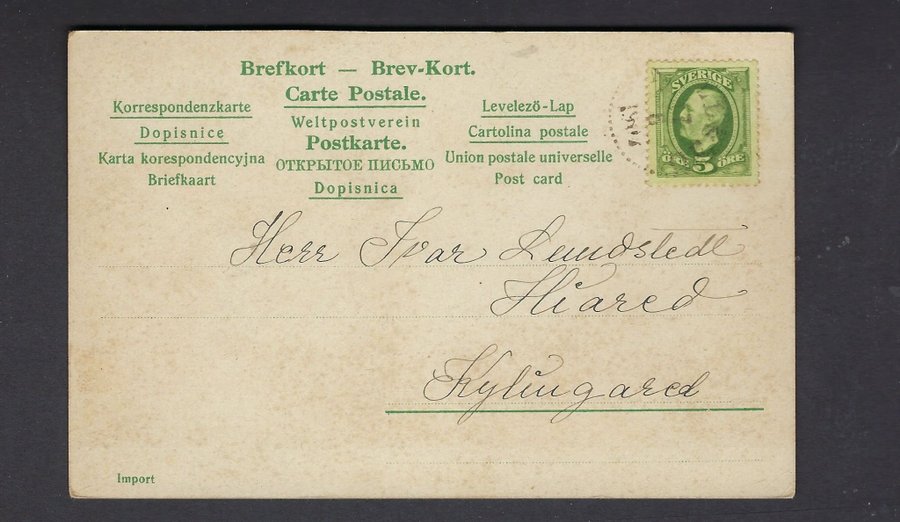 Brefkort — Brev-Kort.
Carte Postale.
Korrespondenzkarte
Weltpostverein
Levelező-Lap
Dopisnice
Postkarte.
Cartolina postale
Karta korespondencyjna
ОТКРЫТОЕ ПИСЬМО
Union postale universelle
Briefkaart
Dopisnica
Post card
SVERIGE
ÖRE 5 ÖRE
Herr Ivar Lundstedt
Hiared
Kylingared
Import